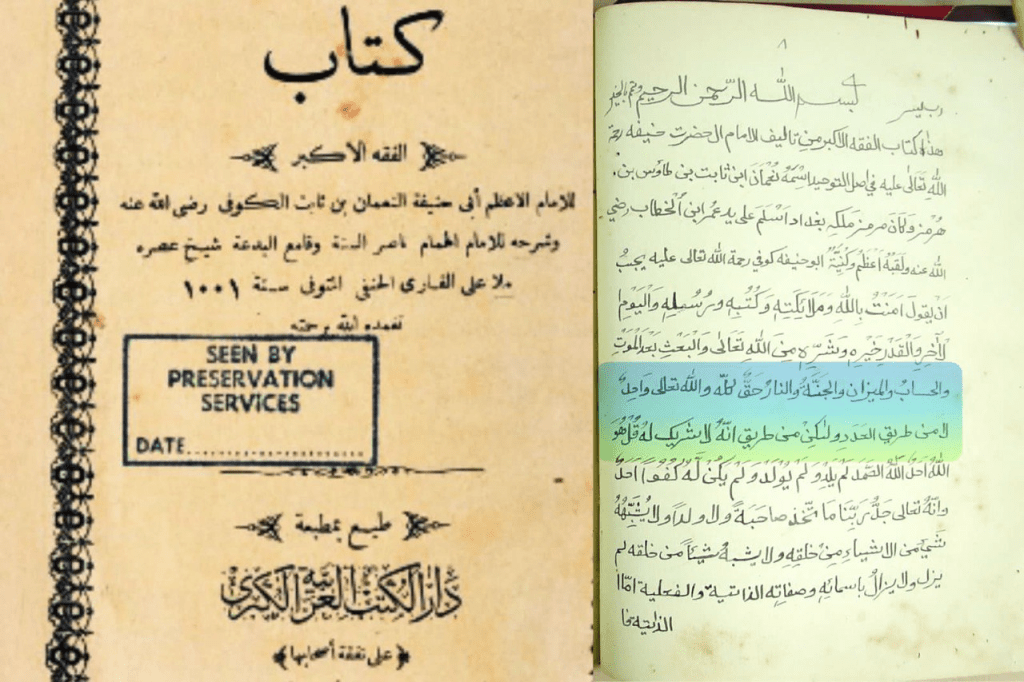 كتاب
الفقه الاكبر
للامام الاعظم أبى حنيفة النعمان بن ثابت الكوفى رضى الله عنه
وشرحه للامام الهمام ناصر السنة وقامع البدعة شيخ عصره
ملا على القارى الحنفى المتوفى سنة ١٠٠١
تغمده الله برحمته
SEEN BY
PRESERVATION
SERVICES
DATE
طبع بمطبعة
دار الكتب العربية الكبرى
﴿على نفقة أصحابها﴾
٨
رب يسر بسم الله الرحمن الرحيم وتمم بالخير
هذا كتاب الفقه الاكبر من تاليف الامام الحضرت حنيفه رحمة
الله تعالى عليه في اصل التوحيد اسمه نعمان ابن ثابت بن طاوس بن
هرمز وكان هرمز ملك بغداد اسلم على يد عمر ابن الخطاب رضي
الله عنه ولقبه اعظم وكنية ابو حنيفه كوفي رحمة الله تعالى عليه يجب
اَنْ يقول آمَنْتُ بِاللهِ وَمَلَائِكَتِهِ وَكُتُبِهِ وَرُسُلِهِ وَالْيَوْمِ
الْآخِرِ وَالْقَدْرِ خَيْرِهِ وَشَرِّهِ مِنَ اللهِ تَعَالَى وَالْبَعْثِ بَعْدَ الْمَوْتِ
والحساب والميزان والجنة والنار حق كله والله تعالى واحد
لا من طريق العدد ولكن من طريق انه لا شريك له قل هو
الله احد الله الصمد لم يلد ولم يولد ولم يكن له كفوا احد
وانه تعالى جد ربنا ما تخذ صاحبة ولا ولدا ولا يشبهه
شيئ من الاشياء من خلقه ولا يشبه شيئا من خلقه لم
يزل ولا يزال باسمائه وصفاته الذاتية والفعلية امّا
الذاتية